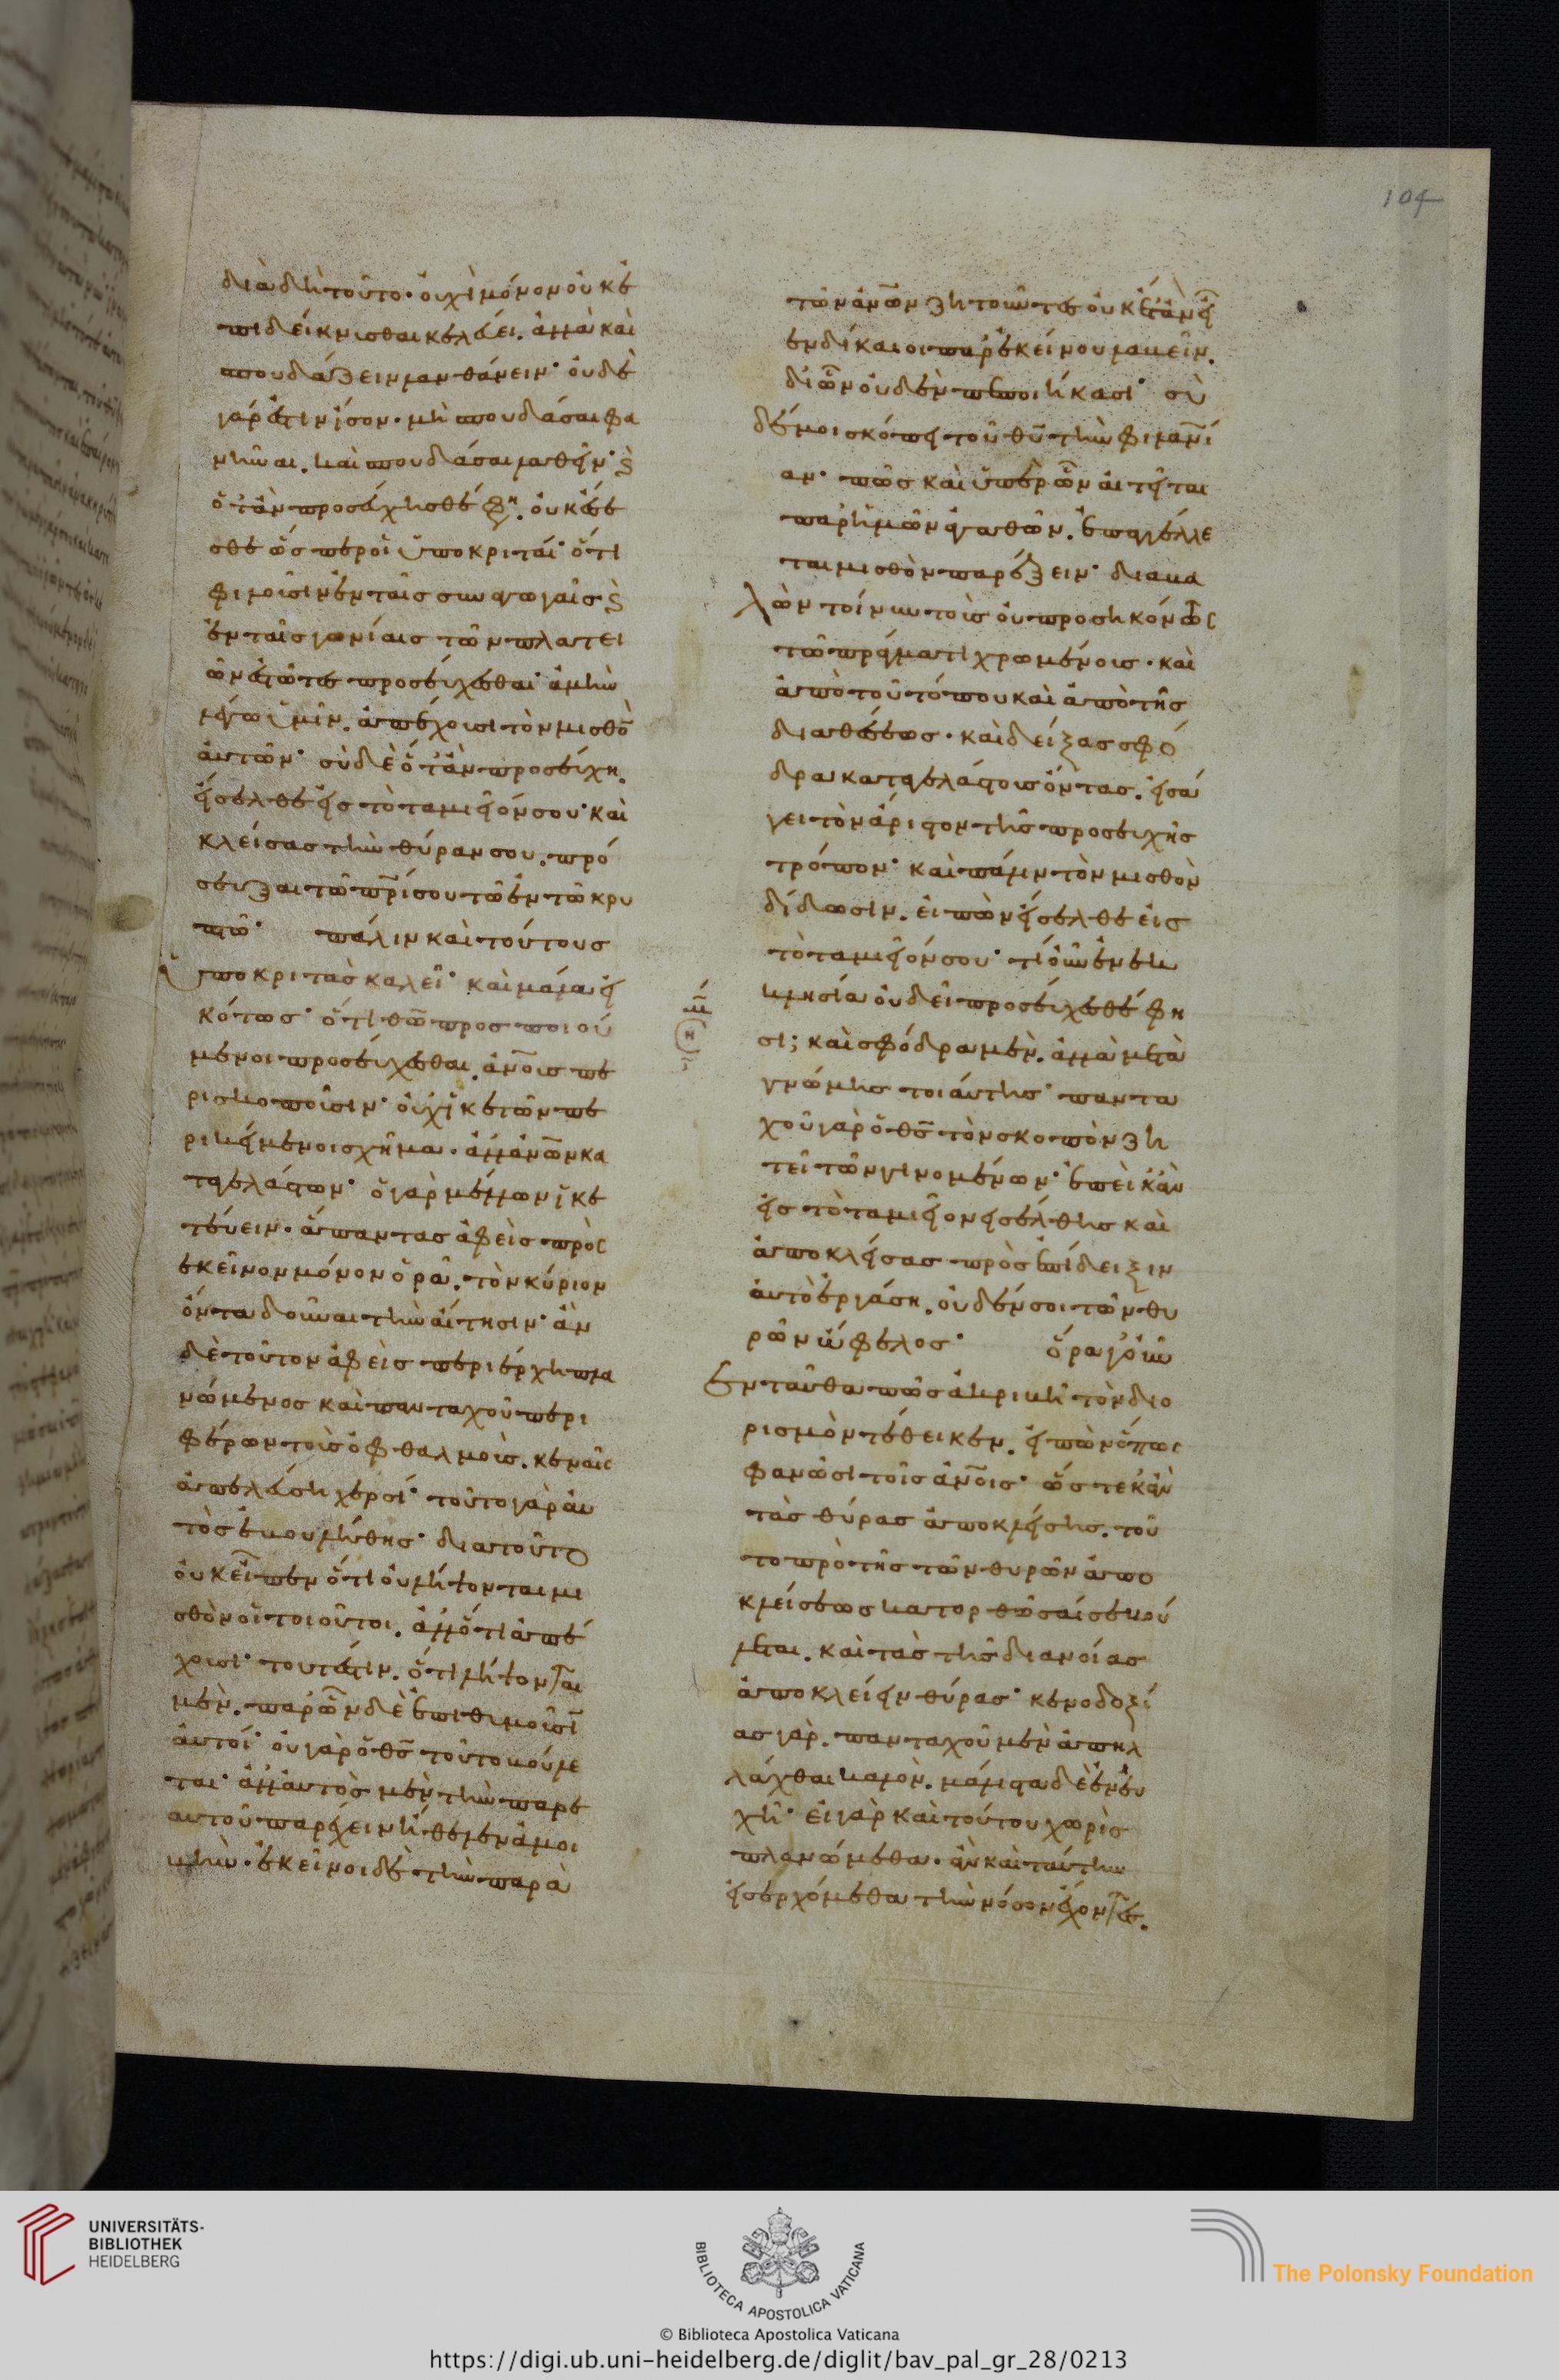 104
διὰ δὴ τοῦτο· οὐχὶ μόνον οὐκ ἐ
πιδείκνυσθαι κελεύει. ἀλλὰ καὶ
σπουδάζειν λανθάνειν· οὐδὲ
γάρ ἐστιν ἴσον· μὴ σπουδάσαι φα
νῆναι. καὶ σπουδάσαι λαθεῖν· ϗ
ὅταν προσεύχησθέ φη. οὐκ ἔσε
σθε ὥσπερ οἱ ὑποκριταί· ὅτι
φιλοῦσιν ἐν ταῖς συναγωγαῖς ϗ
ἐν ταῖς γωνίαις τῶν πλατει
ῶν ἑστῶτες προσεύχεσθαι· ἀμὴν
λέγω ὑμῖν. ἀπέχουσι τὸν μισθὸ̅
αὐτῶν· σὺ δὲ ὅταν προσεύχῃ.
εἴσελθε εἰς τὸ ταμιεῖόν σου· καὶ
κλείσας τὴν θύραν σου. πρό
σευξαι τῷ πρ̅ί σου τῷ ἐν τῷ κρυ
πτῷ· πάλιν καὶ τούτους
ὑποκριτὰς καλεῖ· καὶ μάλα εἰ
κότως· ὅτι θῶ̅ προσποιού
μενοι προσεύχεσθαι. ἀνο̅ις πε
ρισκοποῦσιν· οὐχ ἱκετῶν πε
ρικείμενοι σχῆμα· ἀλλ' ἀνω̅ν κα
ταγελάστων· ὁ γὰρ μέλλων ἱκε
τεύειν. ἅπαντας ἀφεὶς πρὸς
ἐκεῖνον μόνον ὁρᾷ. τὸν κύριον
ὄντα δοῦναι τὴν αἴτησιν· ἂν
δὲ τοῦτον ἀφεὶς περιέρχῃ πλα
νώμενος καὶ πανταχοῦ περι
φέρων τοὺς ὀφθαλμοὺς. κεναῖς
ἀπελεύσῃ χερσί· τοῦτο γὰρ αὐ
τὸς ἐβουλήθης· διὰ τοῦτο
οὐκ εἶπεν ὅτι οὐ λήψονται μι
σθὸν οἱ τοιοῦτοι. ἀλλ' ὅτι ἀπέ
χουσι· τουτέστιν. ὅτι λήψονται
μὲν. παρ' ὧν δὲ ἐπιθυμοῦσι
αὐτοί· οὐ γὰρ ὁ θς̅ τοῦτο βούλε
ται· ἀλλ' αὐτὸς μὲν τὴν παρ' ἑ
αυτοῦ παρέχειν ἤθελεν ἀμοι
βὴν· ἐκεῖνοι δὲ τὴν παρὰ
τῶν ἀνω̅ν ζητοῦντες οὐκέτ' ἂν εἶ
εν δίκαιοι παρ' ἐκείνου λαβεῖν.
δι' ὧν οὐδὲν πεποιήκασι· σὺ
δέ μοι σκόπει τοῦ θυ̅ τὴν φιλαν̅ί
αν· πῶς καὶ ὑπὲρ ὧν αἰτεῖται
παρ' ἡμῶν ἀγαθῶν. ἐπαγγέλλε
ται μισθὸν παρέξειν· διαβα
λὼν τοίνυν τοὺς οὐ προσηκόντως
τῷ πράγματι χρωμένους· καὶ
ἀπὸ τοῦ τόπου καὶ ἀπὸ τῆς
διαθέσεως· καὶ δείξας σφό
δρα καταγελάστους ὄντας. εἰσά
γει τὸν ἄριστον τῆς προσευχῆς
τρόπον· καὶ πάλιν τὸν μισθὸν
δίδωσιν. εἰπὼν εἴσελθε εἰς
τὸ ταμιεῖόν σου· τί οὖν ἐν ἐκ
κλησίᾳ οὐ δεῖ προσεύχεσθέ φη
σι; καὶ σφόδρα μὲν. ἀλλὰ μετὰ
γνώμης τοιαύτης· παντα
χοῦ γὰρ ὁ θς̅ τὸν σκοπὸν ζη
τεῖ τῶν γινομένων· ἐπεὶ κἂν
εἰς τὸ ταμιεῖον εἰσέλθῃς καὶ
ἀποκλείσας πρὸς ἐπίδειξιν
αὐτὸ ἐργάσῃ. οὐδέν σοι τῶν θυ
ρῶν ὄφελος· ὅρα γ' οὖν
ἐνταῦθα πῶς ἀκριβῆ τὸν διο
ρισμὸν τέθεικεν. εἰπὼν ὅπως
φανῶσι τοῖς ἀνο̅ις· ὥστε κἂν
τὰς θύρας ἀποκλείσῃς. τοῦ
το πρὸ τῆς τῶν θυρῶν ἀπο
κλείσεως κατορθῶσαί σε βού
λεται. καὶ τὰς τῆς διανοίας
ἀποκλείειν θύρας· κενοδοξί
ας γὰρ. πανταχοῦ μὲν ἀπηλ
λάχθαι καλὸν. μάλιστα δὲ ἐν εὐ
χῇ· εἰ γὰρ καὶ τούτου χωρὶς
πλανώμεθα· ἂν καὶ ταύτην
εἰσερχόμεθα τὴν νόσον ἔχοντες.
UNIVERSITÄTS-
BIBLIOTHEK
HEIDELBERG
BIBLIOTECA APOSTOLICA VATICANA
The Polonsky Foundation
© Biblioteca Apostolica Vaticana
https://digi.ub.uni-heidelberg.de/diglit/bav_pal_gr_28/0213